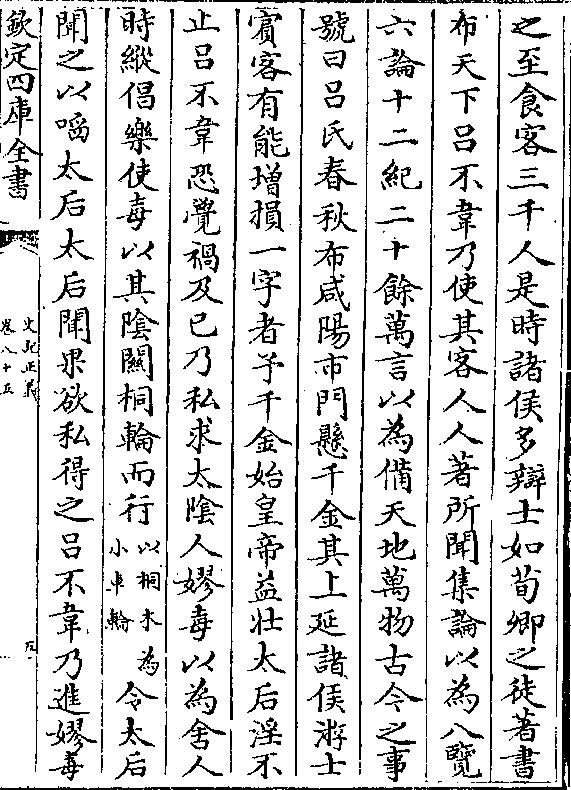 之至食客三千人是時諸侯多辯士如荀卿之徒著書
布天下吕不韋乃使其客人人著所聞集論以為八覽
六論十二紀二十餘萬言以為備天地萬物古今之事
號曰吕氏春秋布咸陽市門懸千金其上延諸侯游士
賓客有能增損一字者予千金始皇帝益壯太后淫不
止吕不韋恐覺禍及己乃私求太陰人嫪毐以為舍人
時縱倡樂使毐以其陰關桐輪而行以桐木為小車輪令太后
聞之以啗太后太后聞果欲私得之吕不韋乃進嫪毐
欽定四庫全書
史記正義
卷八十五
五